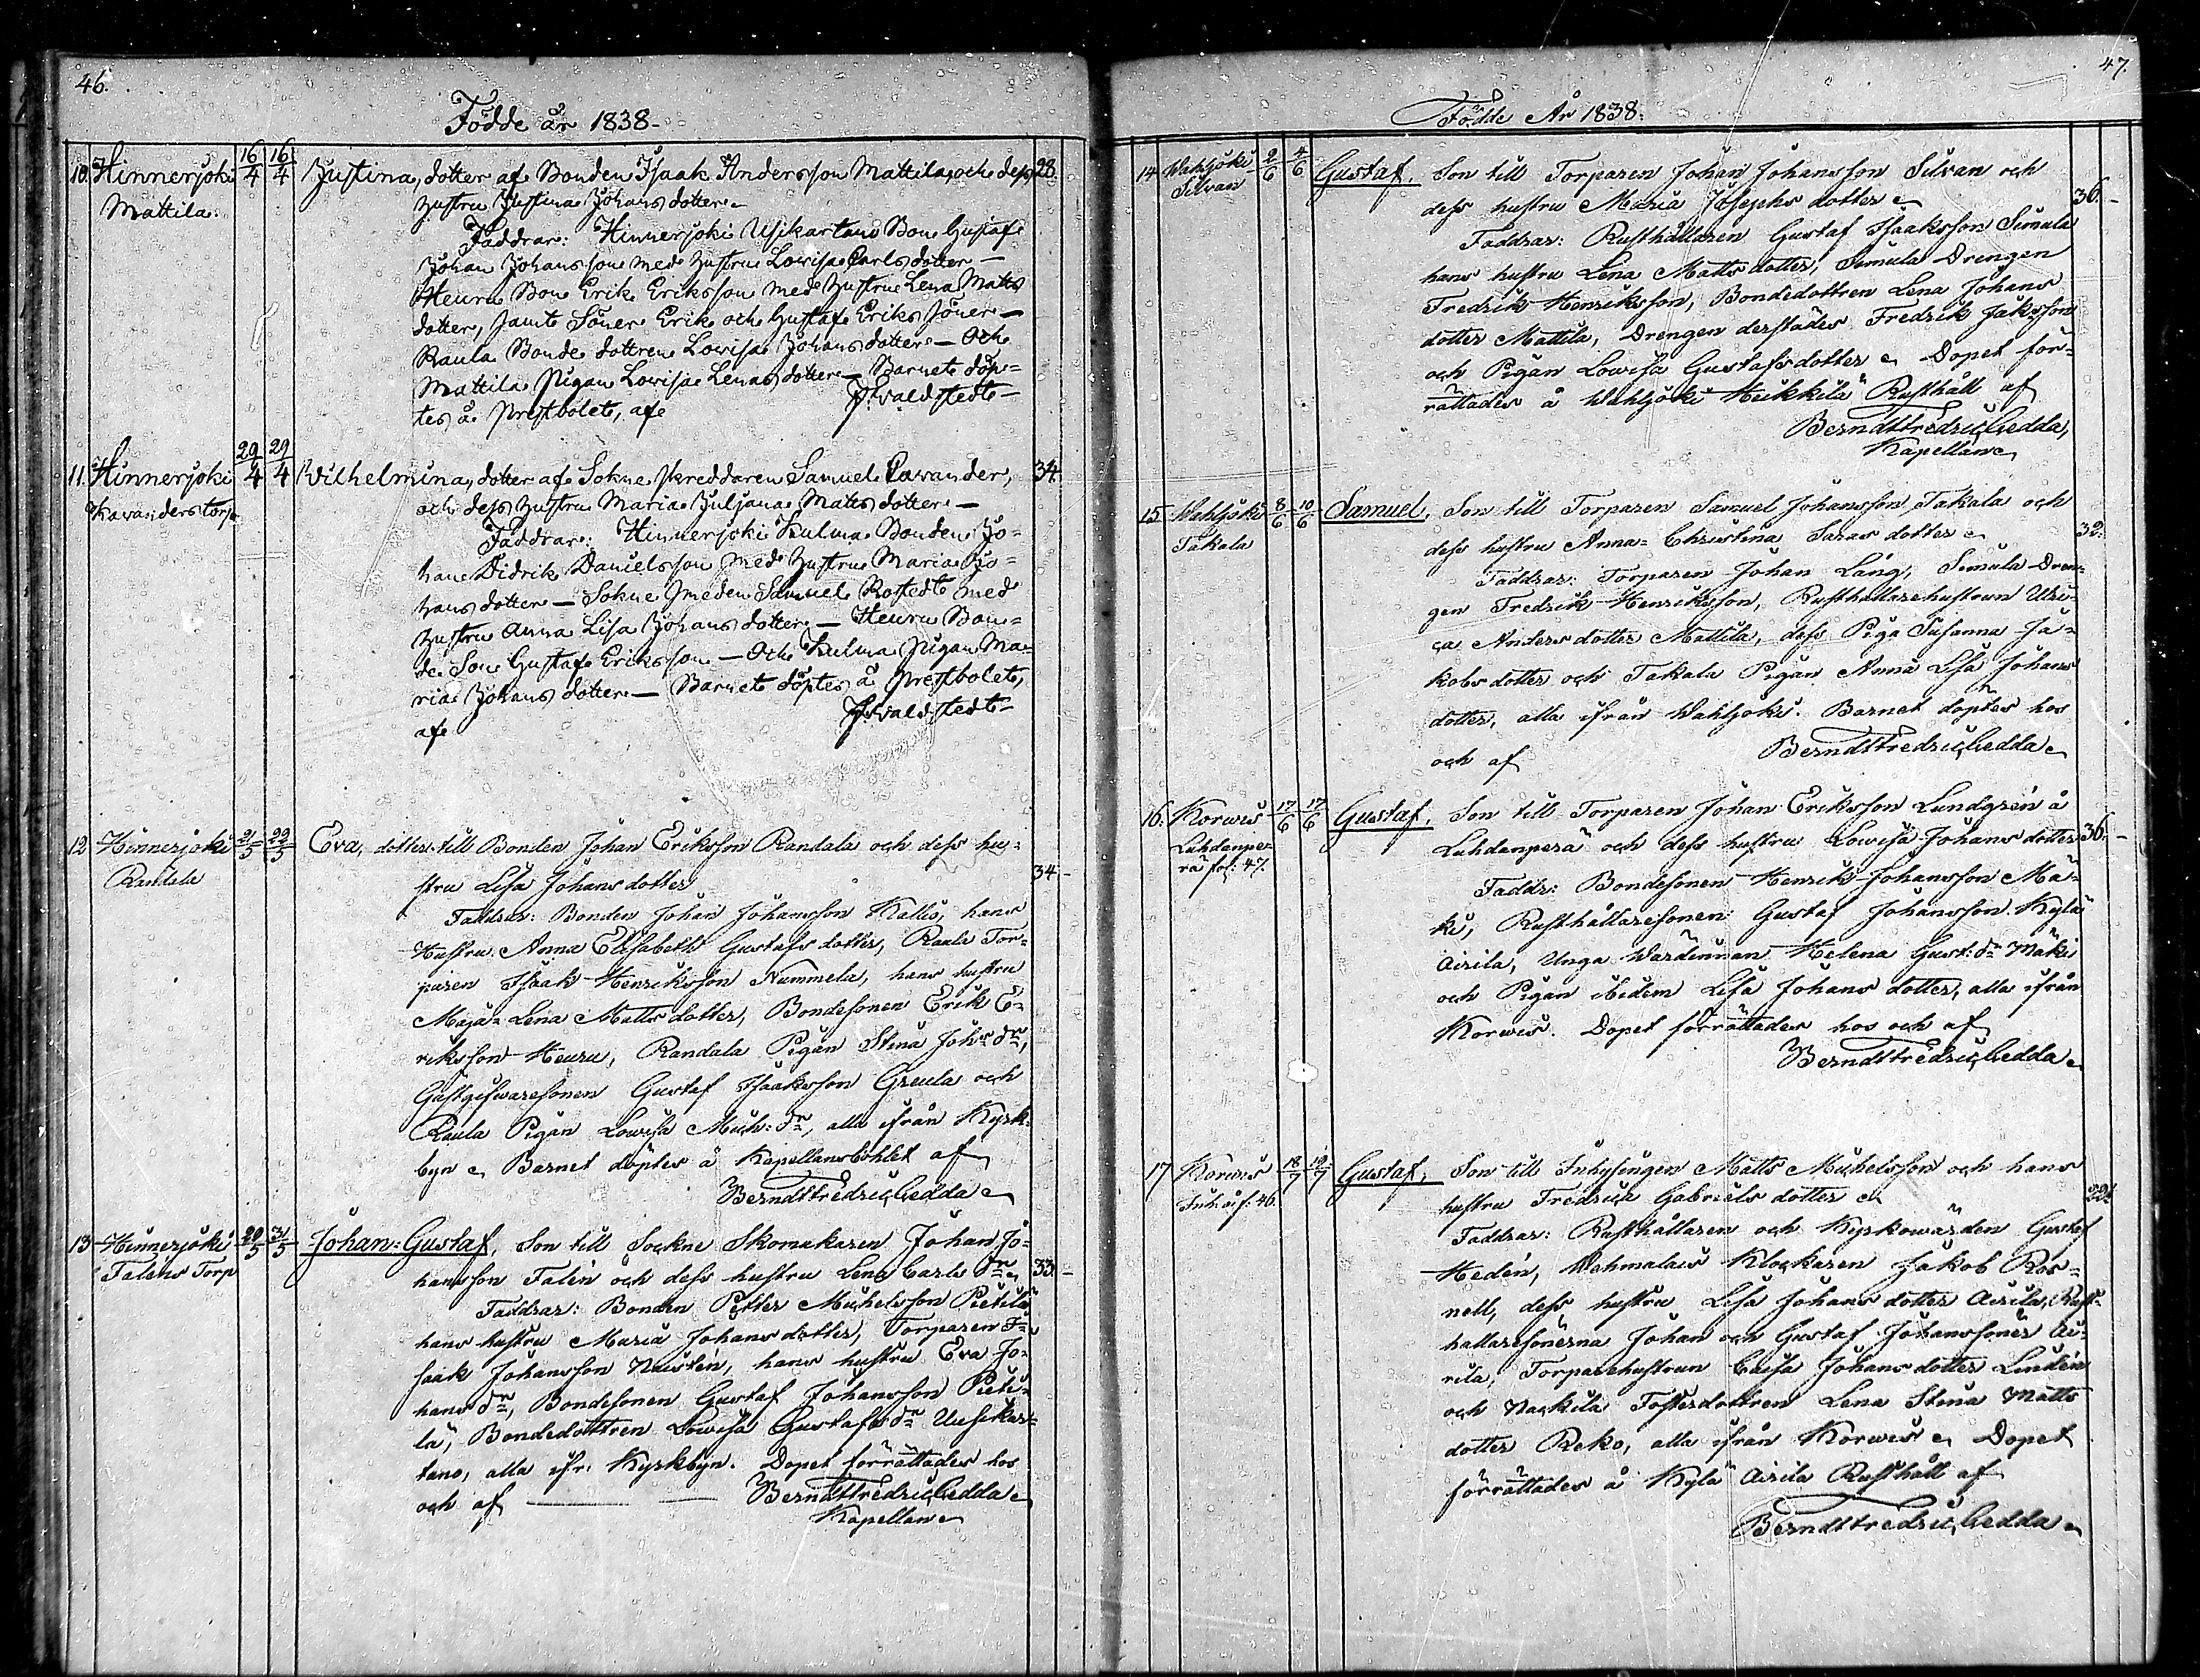 46.
Födde år 1838-
10. Hinnerjoki 16/4 16/4 Justina, dotter af Bonden Isaak Andersson Mattila, och dess 28.
Mattila. hustru Justina Johans dotter.
Faddrar: Hinnerjoki Usikartano Bon Gustaf
Johan Johansson med hustru Lovisa Carls dotter —
Heuru Bon Erik Eriksson med hustru Lena Matts
dotter, samt Söner Erik och Gustaf Eriks söner —
Raula Bonde dottren Lovisa Johans dotter — Och
Mattila Pigan Lovisa Lenas dotter — Barnet döp=
tes å Prestbolet, af
11. Hinnerjoki 29/4 29/4 Wilhelmina, dotter af Sokne skreddaren Samuel Cavander, 34
Kavanders torp och dess hustru Maria Juljana Matts dotter —
Faddrar: Hinnerjoki Kulma Bonden Jo=
han Didrik Danielsson med hustru Maria Jo=
hans dotter — Sokne smeden Samuel Rostedt med
hustru Anna Lisa Johans dotter — Heuru Bon=
de Son Gustaf Eriksson — Och Kulma Pigan Ma=
ria Johans dotter — Barnet döptes å Prestbolet,
af
12 Hinnerjoki 21/5 22/5 Eva, dotter till Bonden Johan Eriksson Randala och dess hu=
Randala stru Lisa Johans dotter 34-
Faddrar: Bonden Johan Johansson Kallis, hans
Hustru Anna Elisabeth Gustafs dotter, Raula Tor=
paren Isaak Henriksson Nummela, hans hustru
Maja-Lena Matts dotter, Bondesonen Erik E=
riksson Heuru, Randala Pigan Stina Johs dr,
Gästgifwaresonen Gustaf Isaaksson Greula och
Raula Pigan Lowisa Mich: dr, alla ifrån Kyrk=
byn. Barnet döptes å Kapellansbohlet af
Berndt Fredric Gedda
13 Hinnerjoki 29/5 31/5 Johan-Gustaf, Son till Sockne Skomakaren Johan Jo=
Talens Torp hansson Talén och dess hustru Lena Carls dr 33-
Faddrar: Bonden Petter Michelsson Pietilä
hans hustru Maria Johans dotter, Torparen I=
saak Johansson Nustén, hans hustru Eva Jo=
hans dr, Bondesonen Gustaf Johansson Pieti=
lä, Bondedottren Lowisa Gustafs dr Uusikar=
tano, alla ifr. Kyrkbyn. Dopet förrättades hos
och af Berndt Fredric Gedda
Kapellan
47.
Födde År 1838.
14 Wahljoki 2/6 4/6 Gustaf, Son till Torparen Johan Johansson Silvan och
Silvan dess hustru Maria Josephs dotter 36.-
Faddrar: Rusthållaren Gustaf Isaaksson Simula
hans hustru Lena Matts dotter, Simula Drengen
Fredrik Henriksson, Bondedottren Lena Johans
dotter Mattila, Drengen derstädes Fredrik Jaksson
och Pigan Lowisa Gustafsdotter. Dopet för=
rättades å Wahljoki Heikkilä Rusthåll af
Berndt Fredric Gedda,
Kapellan
15 Wahljoki 8/6 10/6 Samuel, Son till Torparen Samuel Johansson Takala och
Takala dess hustru Anna-Christina Saras dotter 32.
Faddrar: Torparen Johan Lång, Simula Dren=
gen Fredrik Henriksson, Rusthållarehustrun Ulri=
ca Anders dotter Mattila, dess Piga Susanna Ja=
kobs dotter och Takala Pigan Anna Lisa Johans
dotter, alla ifrån Wahljoki. Barnet döptes hos
och af Berndt Fredric Gedda
16. Korwis 17/6 17/6 Gustaf, Son till Torparen Johan Eriksson Lundgrén å
Luhdanpe= Luhdanperä och dess hustru Lowisa Johans dotter 36.-
rä fol: 47. Faddr: Bondesonen Henrik Johansson Mä=
ki, Rusthållaresonen Gustaf Johansson Kylä
Airila, Unga Wärdinnan Helena Gust: dr Mäki
och Pigan ibidem Lisa Johans dotter, alla ifrån
Korwis. Dopet förrättades hos och af
Berndt Fredric Gedda
17 Korwis 18/7 19/7 Gustaf, Son till Inhysingen Matts Michelsson och hans
Inh. å f: 46. hustru Fredrica Gabriels dotter
Faddrar: Rusthållaren och Kyrkowärden Gustaf
Hedén, Wehmalais Klockaren Jakob Ros=
nell, dess hustru Lisa Johans dotter Airila, Rust=
hållaresönerna Johan och Gustaf Johanssöner Ai=
rila, Torparehustrun Caisa Johans dotter Lindén
och Nackila Fosterdottren Lena Stina Matts
dotter Reko, alla ifrån Korwis. Dopet
förrättades å Kylä Airila Rusthåll af
Berndt Fredric Gedda